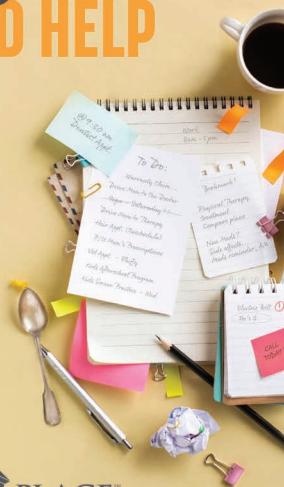 D HELP
@9:30 am
Dentist Appt.
Work
8am - 5pm
To Do:
Warranty Claim
Drive Mom to the Doctor
Drive Mom to Therapy
Hair Appt. (Reschedule)
Fill Mom's Prescriptions
Vet Appt. - Wuffy
Kids Afterschool Program
Kids Soccer Practice - Wed
Bookmark!
Physical Therapy
treatment
Compare place
New Meds?
Side effects
Meds reminder,
Electric Bill
CALL
TODAY
PLACE